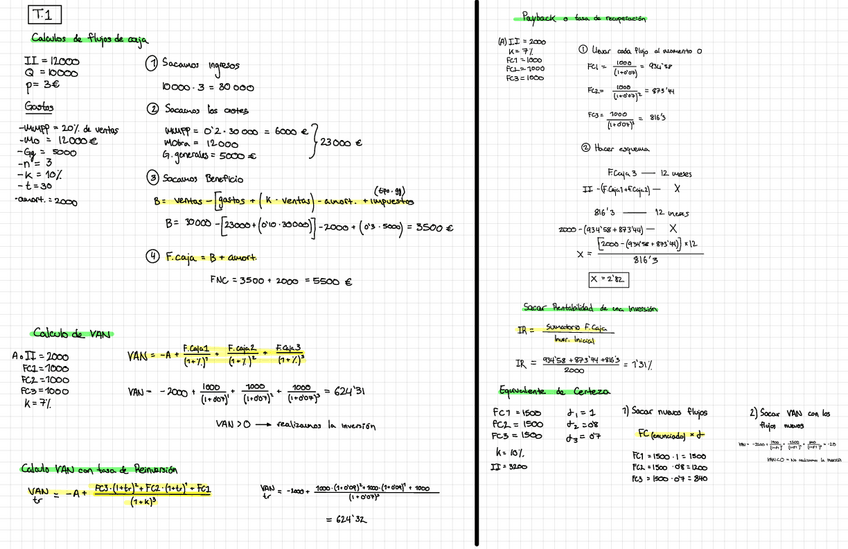 T.1
Calculos de flujos de caja
II = 12000
Q = 10000
p = 3€
Gastos
-MMPP = 20% de ventas
-Mo = 12000 €
-Gg = 5000
-n = 3
-k = 10%
-t = 30
-amort. = 2000
① Sacamos Ingresos
10000 · 3 = 30000
② Sacamos los costes
MMPP = 0'2 · 30 000 = 6000 €
MObra = 12000
G. generales = 5000 €
} 23 000 €
③ Sacamos Beneficio
(tipo · gg)
B = ventas - [gastos + (k · ventas) - amort. + impuestos
B = 30000 - [23000 + (0'10 · 30000)] - 2000 + (0'3 · 5000) = 3500 €
④ F. caja = B + amort
FNC = 3500 + 2000 = 5500 €
Calculo de VAN
A o II = 2000
FC1 = 1000
FC2 = 1000
FC3 = 1000
K = 7%
VAN = -A + F.Caja1/(1+%)¹ + F.Caja2/(1+%)² + F.Caja3/(1+%)³
VAN = -2000 + 1000/(1+0'07)¹ + 1000/(1+0'07)² + 1000/(1+0'07)³ = 624'31
VAN > 0 → realizamos la inversión
Calculo VAN con tasa de Reinversión
VAN tr = -A + FC3·(1+tr)² + FC2·(1+tr)¹ + FC1/(1+k)³
VAN tr = -2000 + 1000·(1+0'09)² + 1000·(1+0'09) + 1000/(1+0'07)³
= 624'32
Payback o tasa de recuperación
(A) II = 2000
K = 7%
FC1 = 1000
FC2 = 1000
FC3 = 1000
① Llevar cada flujo al momento 0
FC1 = 1000/(1+0'07) = 934'58
FC2 = 1000/(1+0'07)² = 873'44
FC3 = 1000/(1+0'07)³ = 816'3
② Hacer esquema
F.Caja 3 — 12 meses
II - (F.Caja1 + F.Caja2) — X
816'3 — 12 meses
2000 - (934'58 + 873'44) — X
X = [2000 - (934'58 + 873'44)] × 12/816'3
X = 2'82
Sacar Rentabilidad de una Inversión
IR = Sumatorio F.Caja/Inver. Inicial
IR = 934'58 + 873'44 + 816'3/2000 = 1'31%
Equivalente de Certeza
FC1 = 1500
FC2 = 1500
FC3 = 1500
k = 10%
II = 3200
α₁ = 1
α₂ = 0'8
α₃ = 0'7
1) Sacar nuevos flujos
FC (enunciado) × α
FC1 = 1500 · 1 = 1500
FC2 = 1500 · 0'8 = 1200
FC3 = 1500 · 0'7 = 840
2) Sacar VAN con los
flujos nuevos